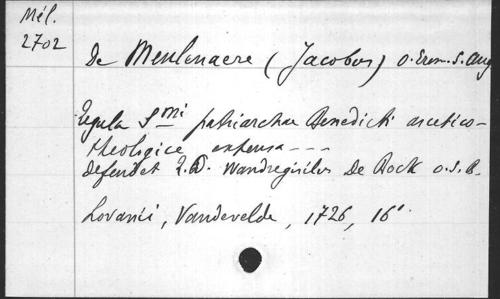 Mél.
2702
De Meulenaere (Jacobus) O. Erem. S. Aug
Regula S.mi patriarchae Benedicti ascetico-
theologice extensa ---
defendet R.D. Wandregisilus De Bock O.S.B.
Lovanii, Vandevelde, 1726, 16°.